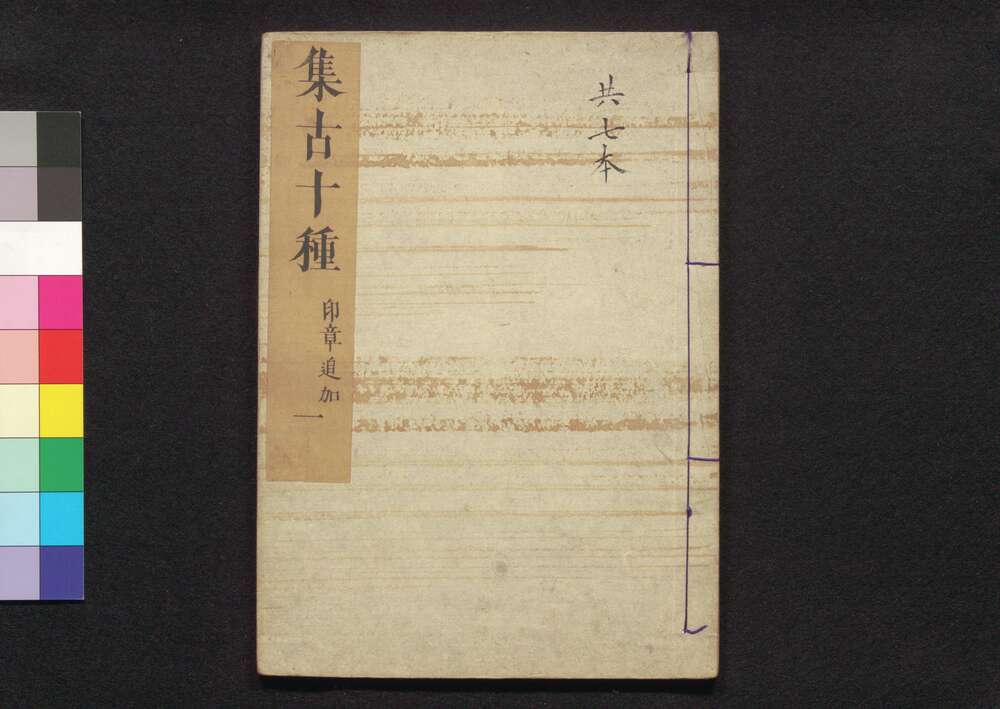 共七本
集古十種
印章追加
一